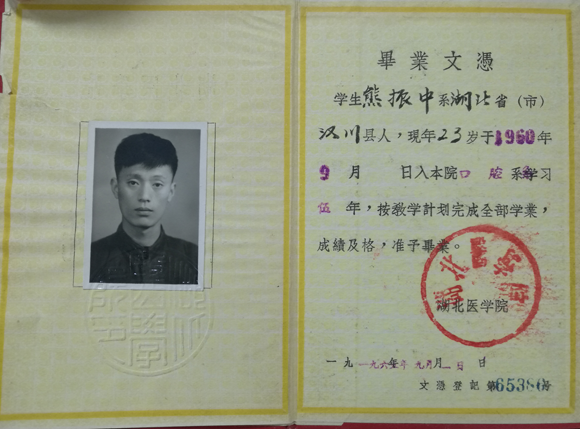 畢業文憑
学生熊振中系湖北省（市）
汉川县人，現年23岁于1960年
9月 日入本院口腔系学习
伍年，按敎学計划完成全部学業，
成績及格，准予畢業。
湖北医学院
文憑登記第65380号